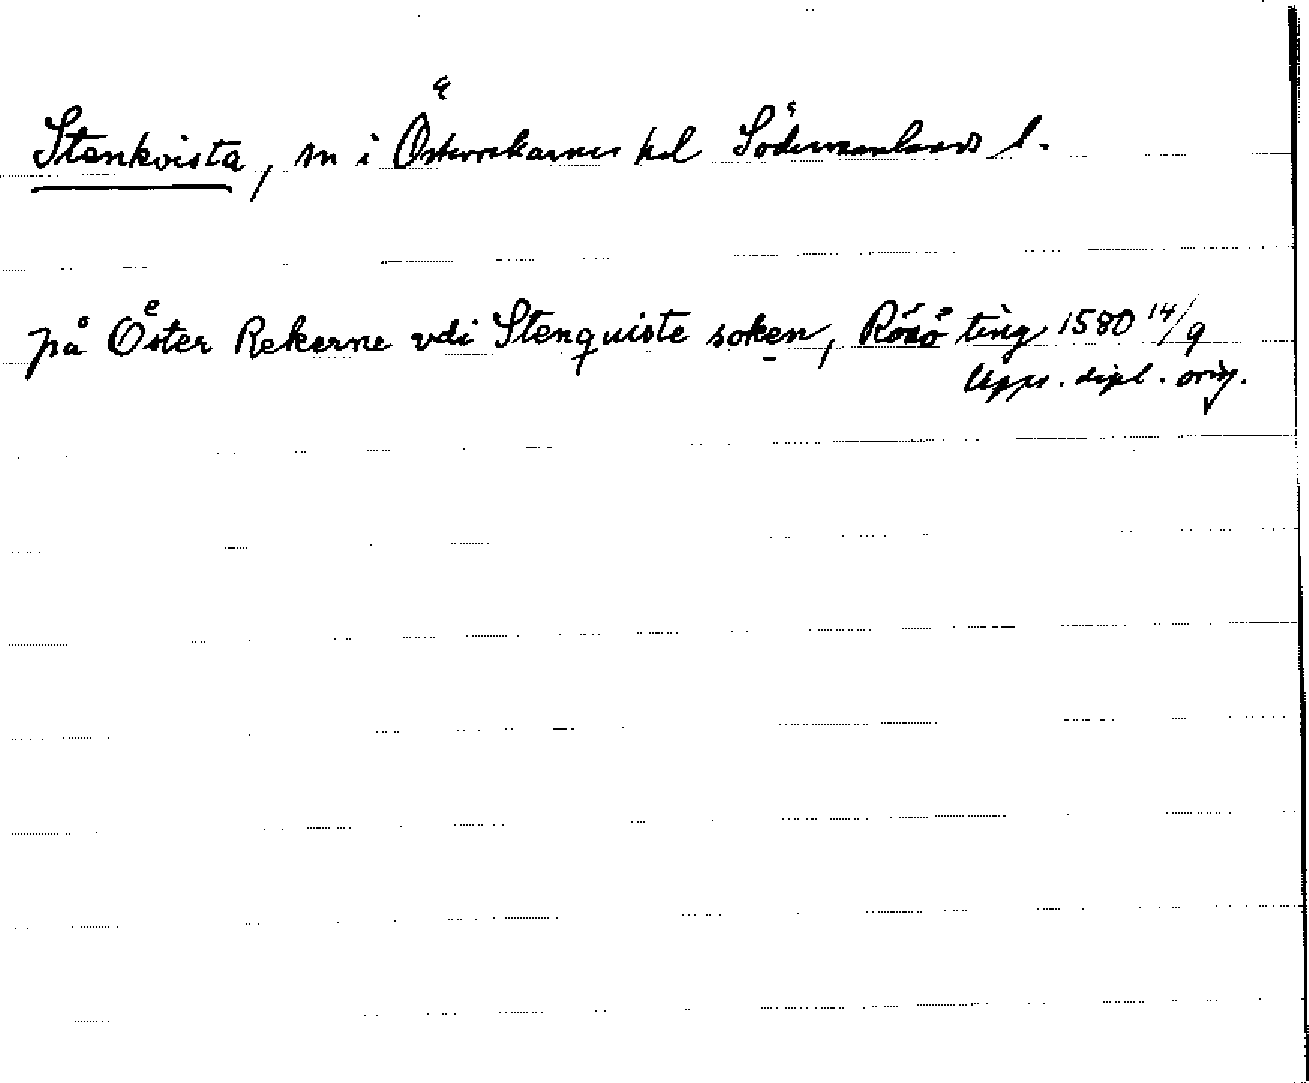 Stenkvista, sn i Österrekarnes hd Södermanlands l.
på Oͤster Rekarne vdi Stenquiste soken, Räfsö ting 1580 14/9
Upps. dipl. orig.